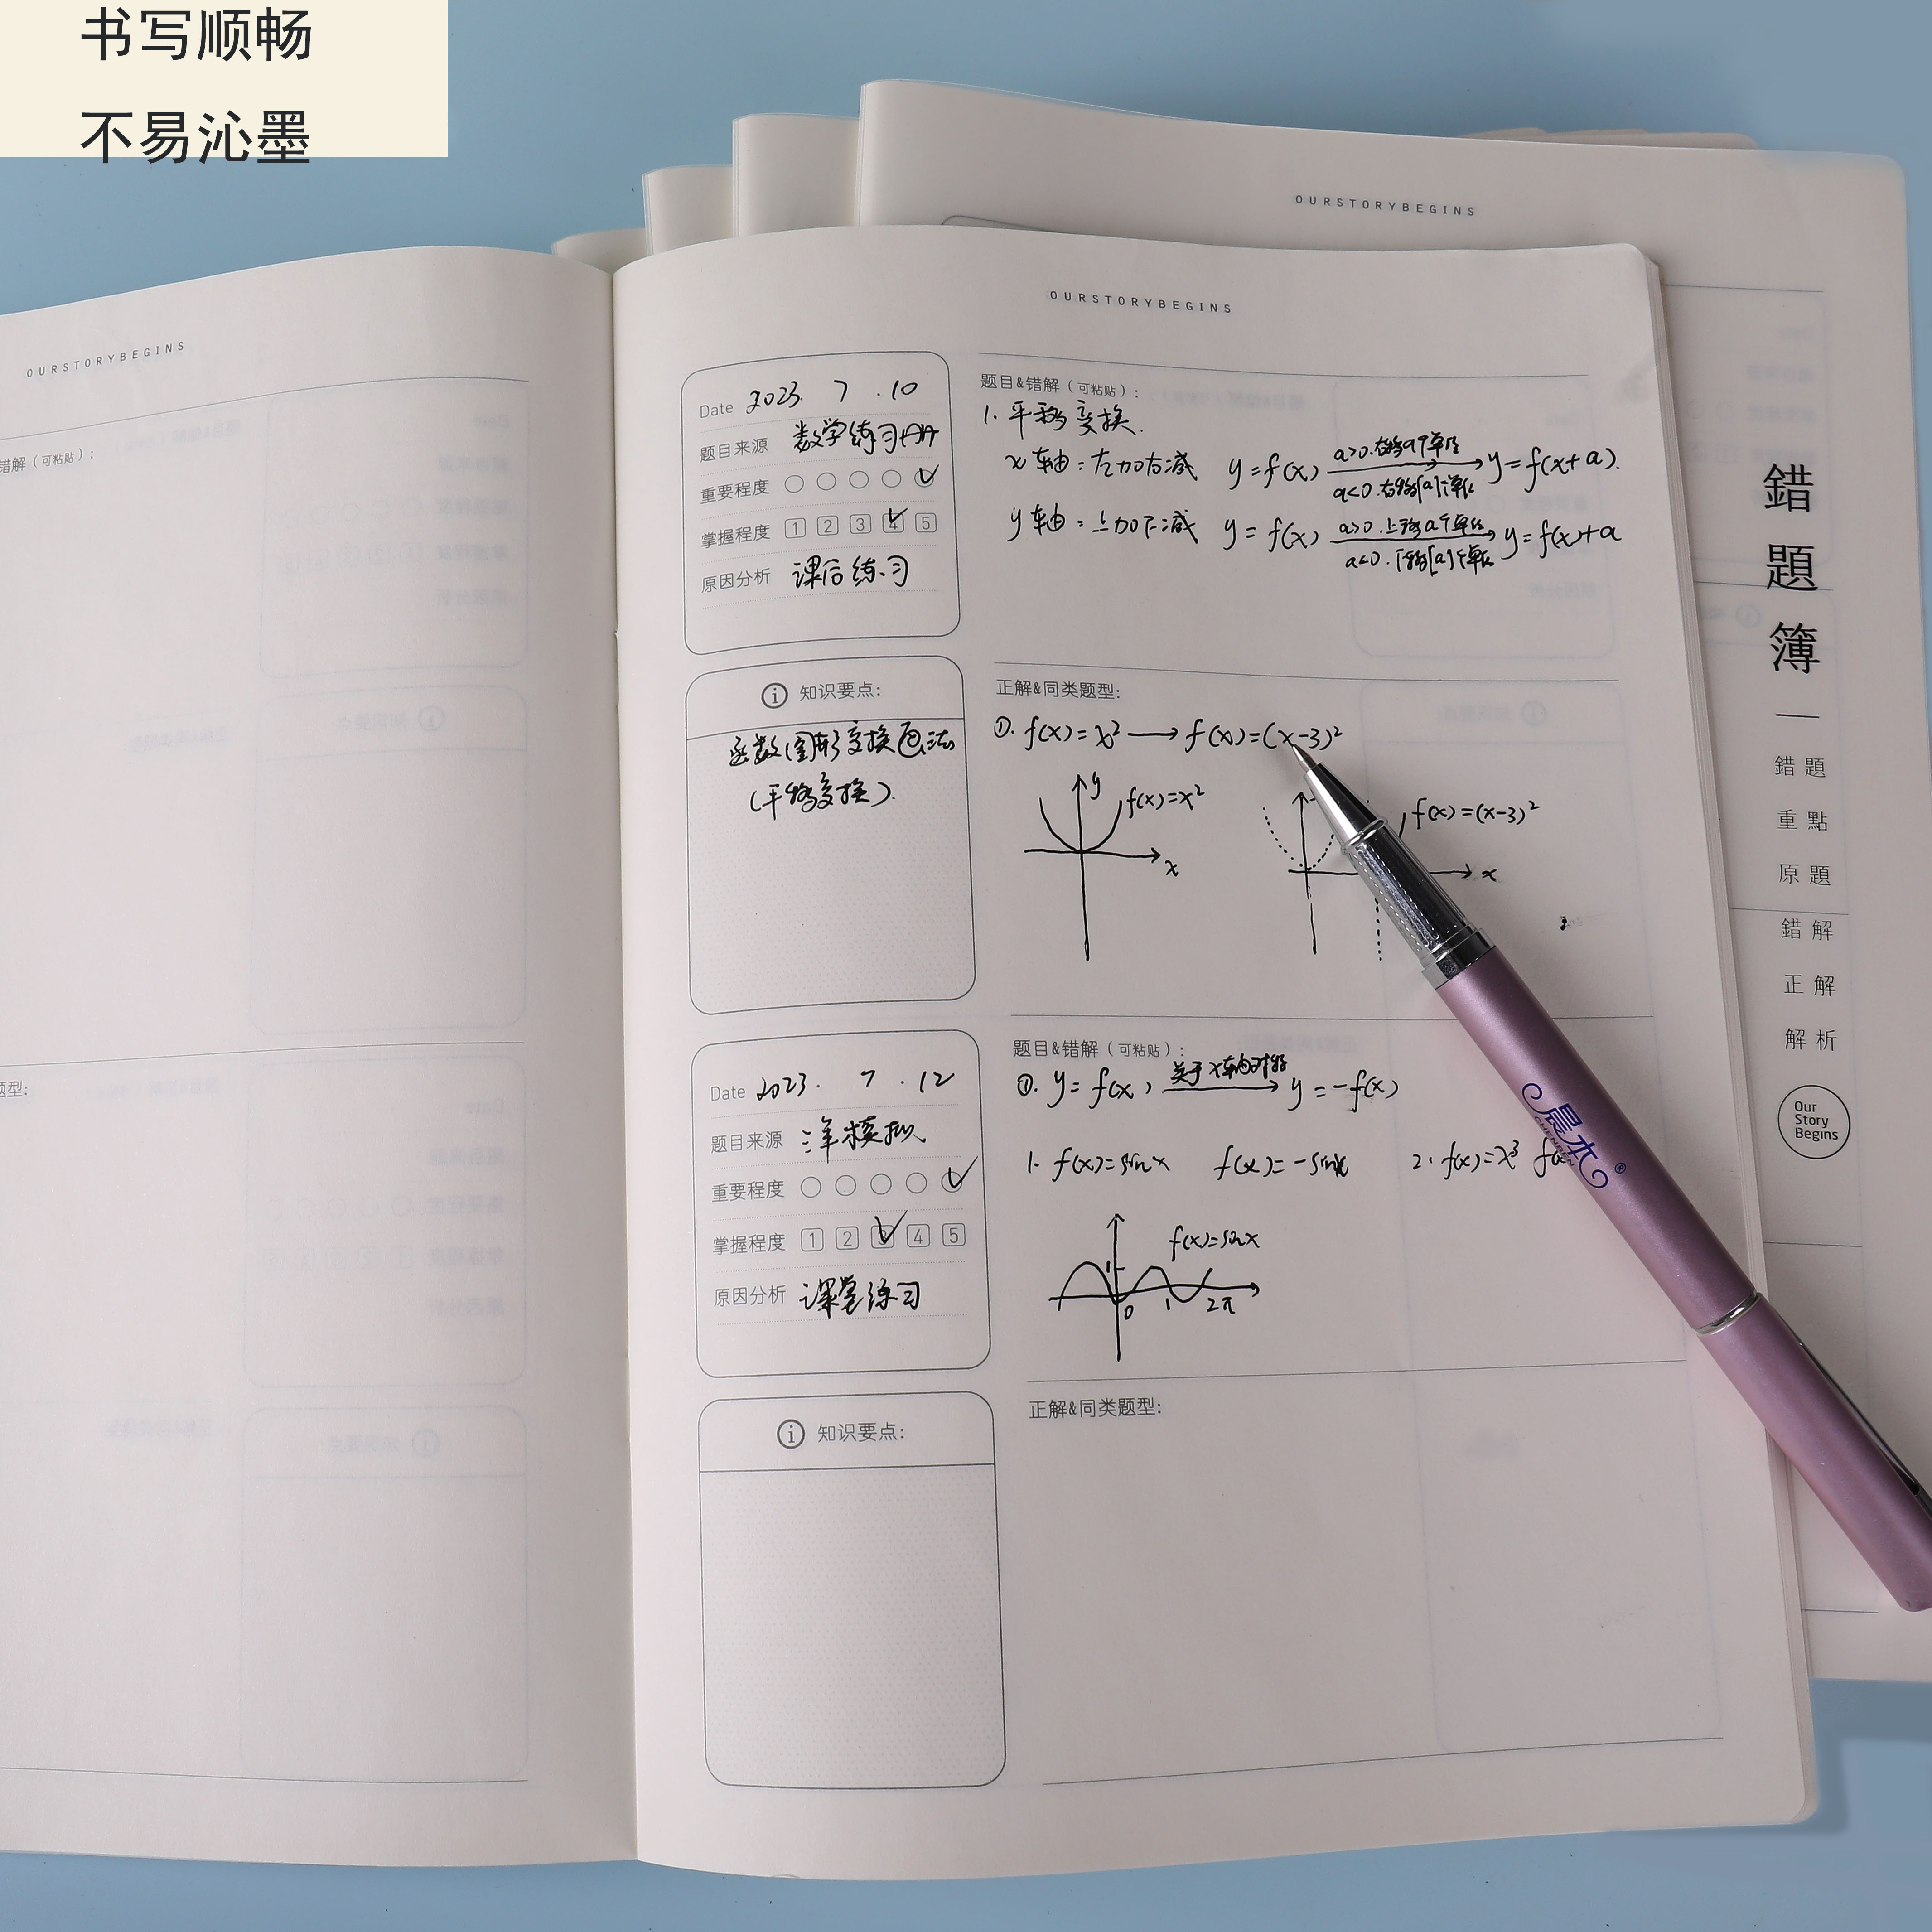 书写顺畅
不易沁墨
OURSTORYBEGINS
OURSTORYBEGINS
OURSTORYBEGINS
错解（可粘贴）:
题型:
Date 2023. 7 .10
题目来源 数学练习册
重要程度
掌握程度 1 2 3 4 5
原因分析 课后练习
题目&错解（可粘贴）:
1. 平移变换.
x轴：左加右减 y=f(x) y=f(x+a).
y轴：上加下减 y=f(x) a>0.上移a个单位 y=f(x)+a
知识要点:
函数图形变换画法
(平移变换).
正解&同类题型:
①. f(x)=x² → f(x)=(x-3)²
y f(x)=x²
x
f(x)=(x-3)²
x
Date 2023. 7 .12
题目来源
重要程度
掌握程度 1 2 3 4 5
原因分析 课堂练习
题目&错解（可粘贴）:
①. y=f(x) 关于x轴对称 y=-f(x)
1. f(x)=sinx f(x)=-sinx 2. f(x)=x³
f(x)=sinx
1
0 1 2π
知识要点:
正解&同类题型:
錯題簿
錯題
重點
原題
錯解
正解
解析
Our
Story
Begins
晨本®